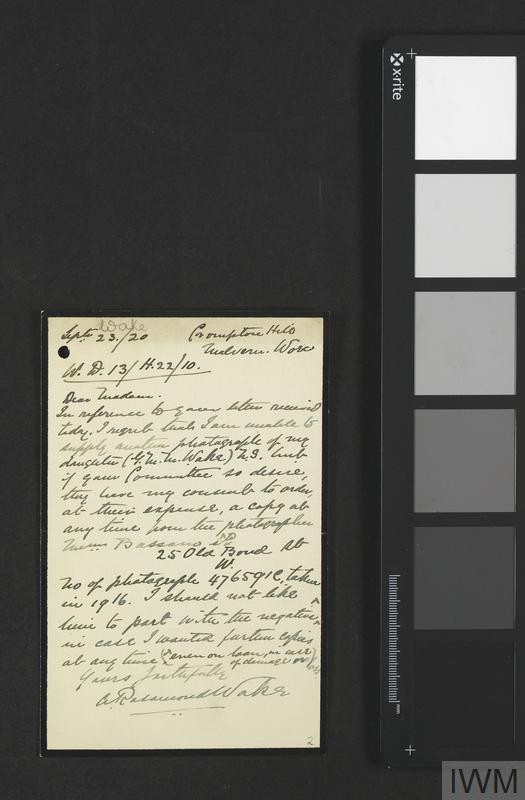 Wake
Septr 23./20 Crompton Hill
Malvern. Worc
W. D. 13/ H.22/10.
Dear Madam.
In reference to your letter received
today, I regret that I am unable to
supply another photograph of my
daughter (G. M. M. Wake.) N.S. but
if your Committee so desire,
they have my consent to order,
at their expense, a copy at
any time from the photographer
Messrs Bassano Ltd
25 Old Bond St
W.
No of photograph 47659 taken
in 1916. I should not like
him to part with the negative
in case I wanted further copies
at any time (even on loan, in case
of damage or
Yours faithfully
A Rosamond Wake
2
x·rite
mm
IWM